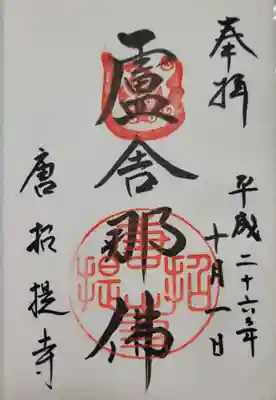 奉拝
平成二十六年
十月一日
盧舎那佛
唐招提寺
唐招提寺